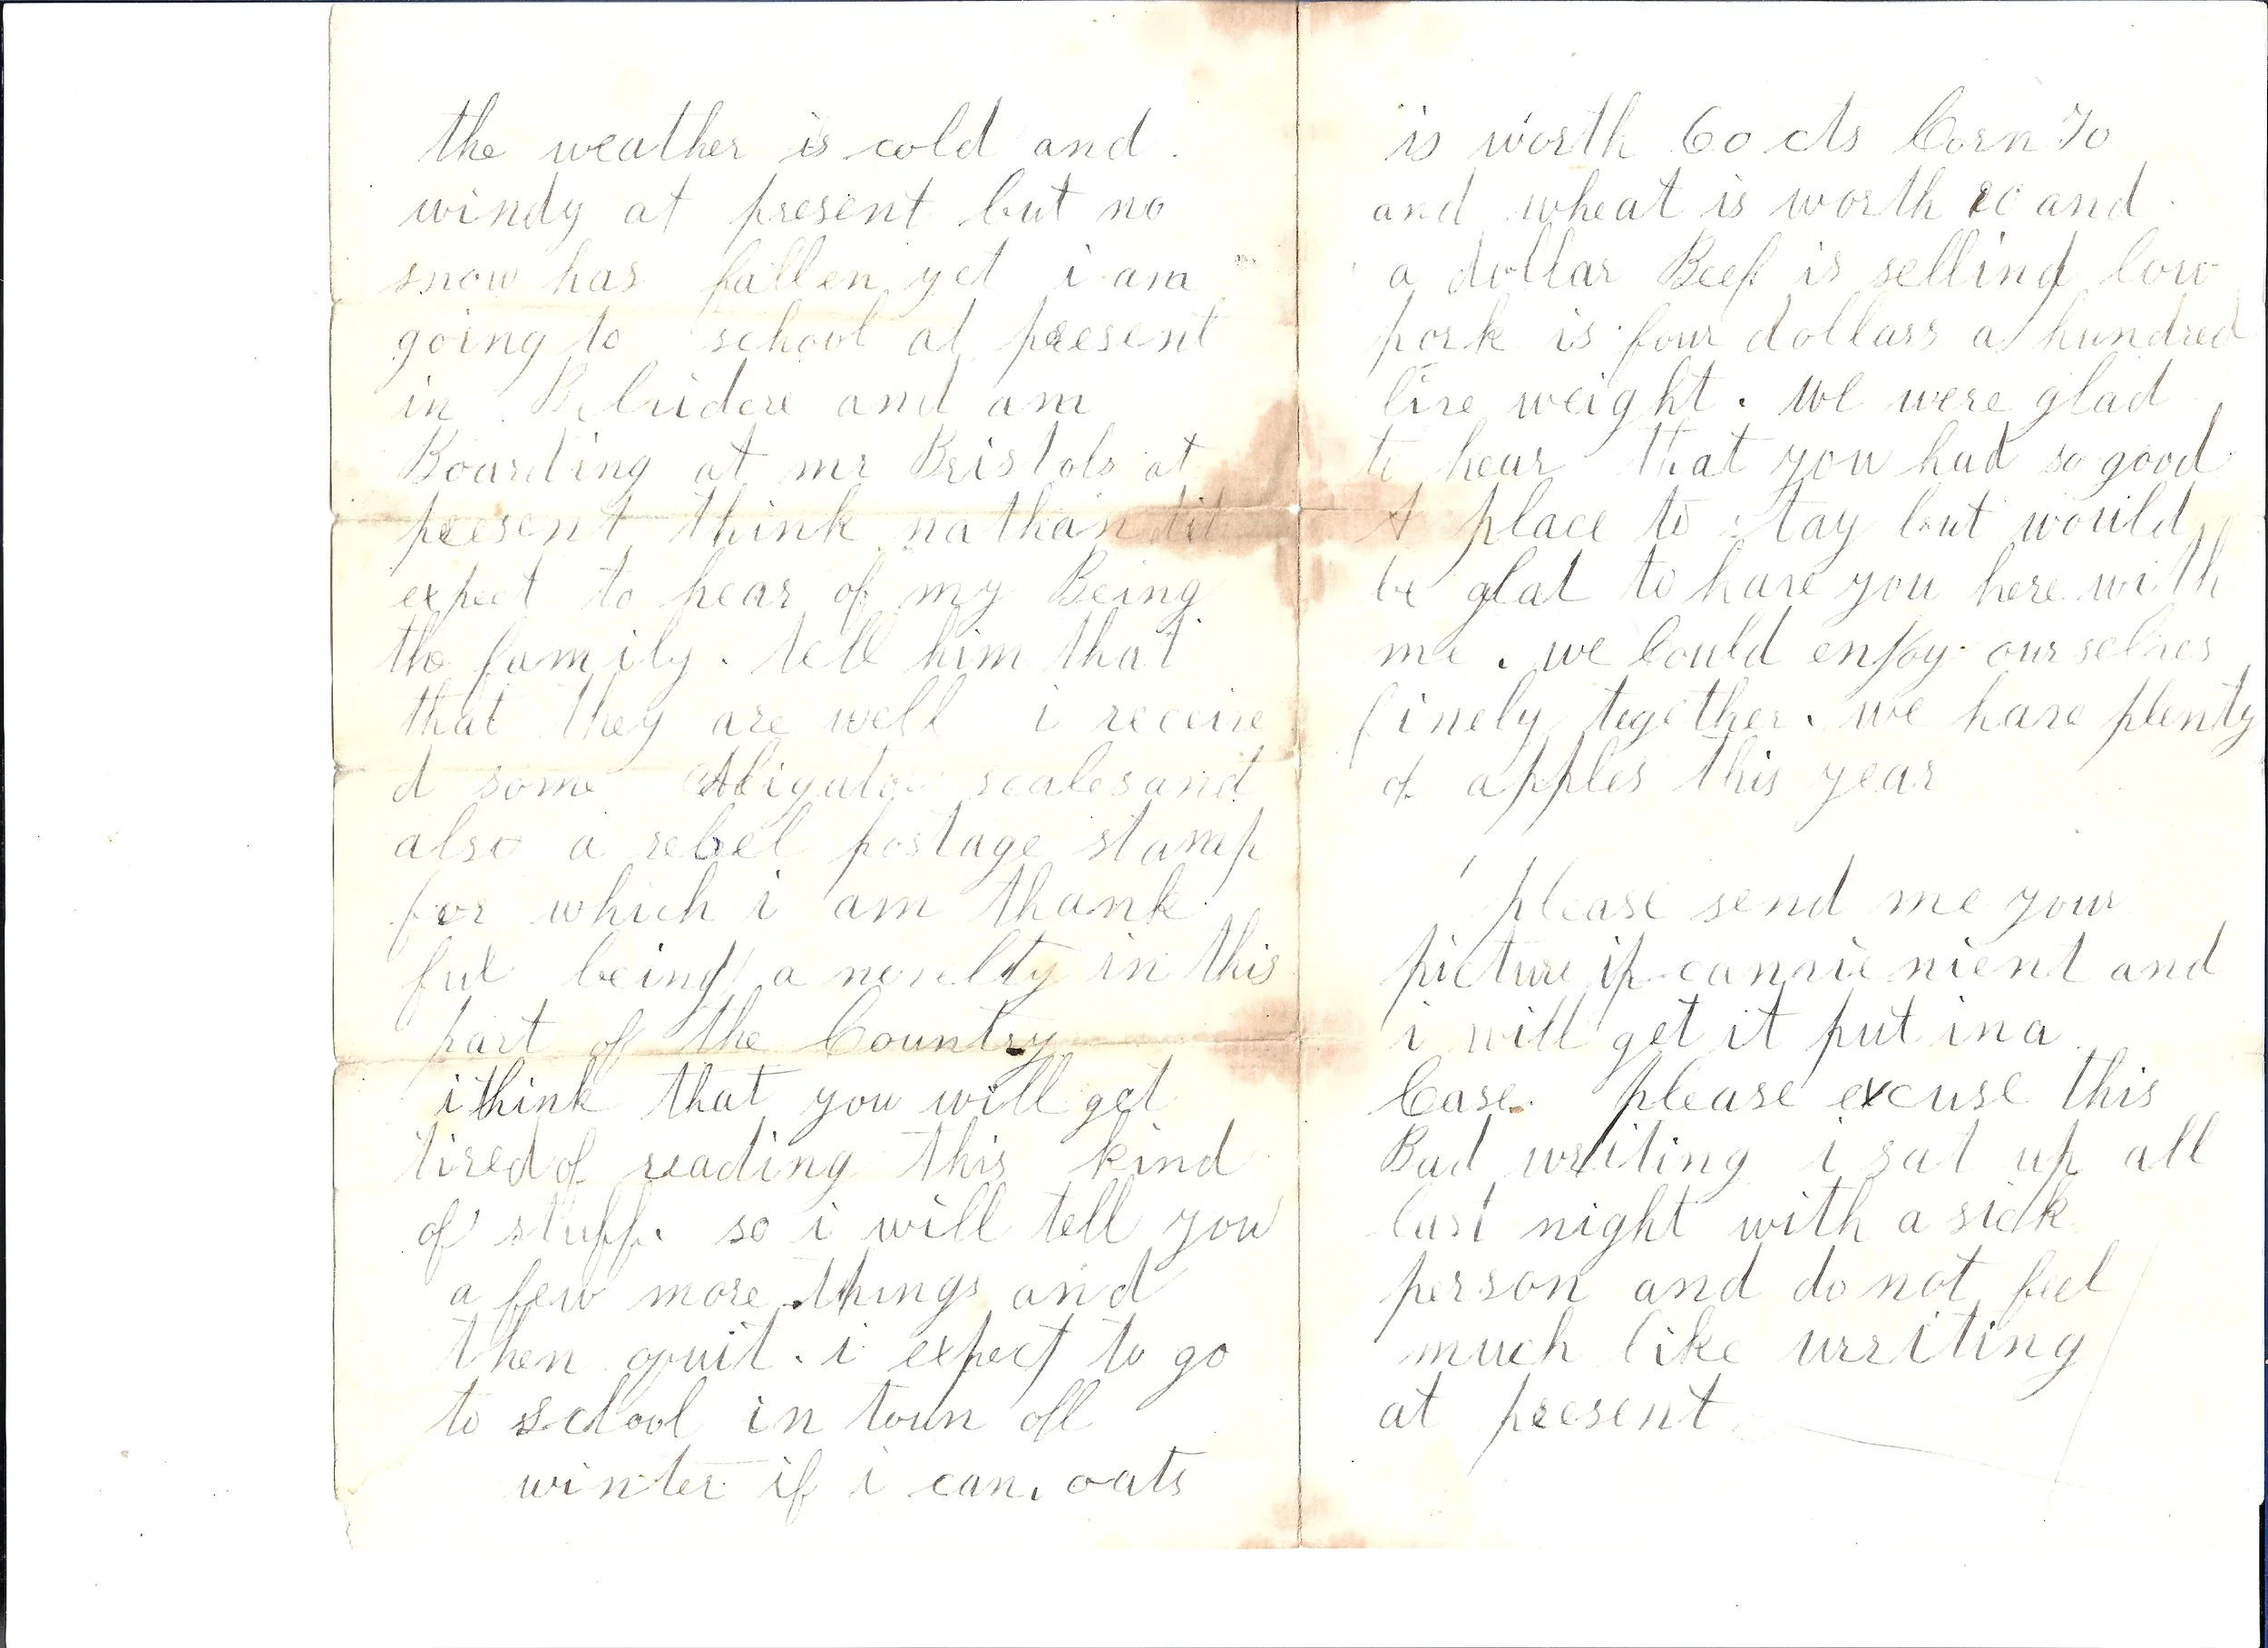 the weather is cold and
windy at present but no
snow has fallen yet i am
going to school at present
in Belvidere and am
Boarding at mr Bristols at
present think nathan did
expect to hear of my Being
the family. tell him that
that they are well i receive
d some Aligator scales and
also a rebel postage stamp
for which i am thank
ful being a novelty in this
part of the Country
i think that you will get
tired of reading this kind
of stuff. so i will tell you
a few more things and
then quit. i expect to go
to school in town all
winter if i can. oats
is worth 60 cts Corn 70
and wheat is worth and
a dollar Beef is selling low
pork is four dollars a hundred
live weight. we were glad
to hear that you had so good
A place to stay but would
be glad to have you here with
me. we Could enjoy our selves
finely together. we have plenty
of apples this year
please send me your
picture if convienient and
i will get it put in a
Case. please excuse this
Bad writing i sat up all
last night with a sick
person and do not feel
much like writing
at present